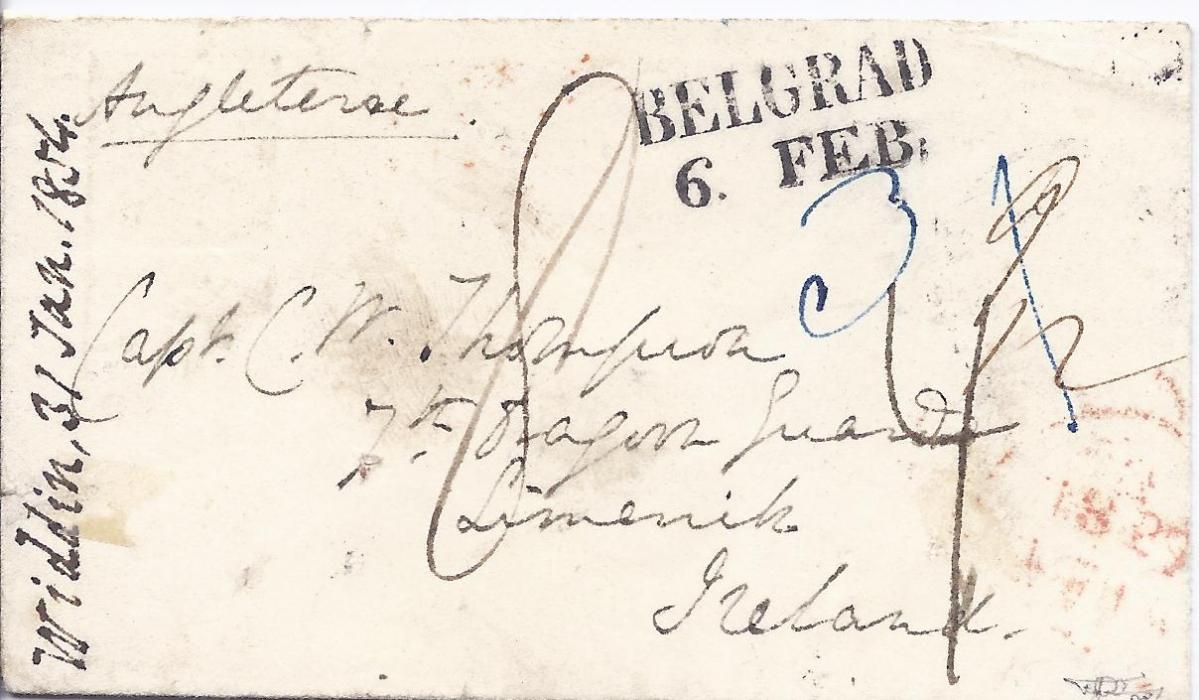 Angleterre.
BELGRAD
6. FEB.
Capt. C. W. Thompson
7th Dragoon Guards
Limerick
Ireland.
Widdin, 31 Jan. 1854.